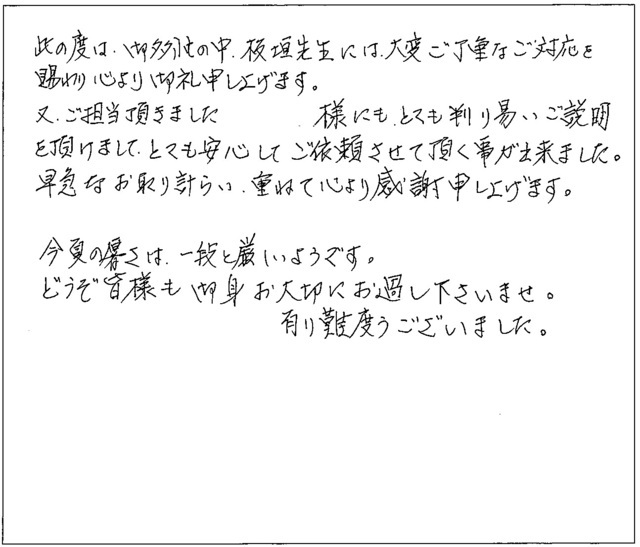 此の度は、御多忙の中、板垣先生には、大変ご丁重なご対応を
賜わり心より御礼申し上げます。
又、ご担当頂きました　　　様にも、とても判り易いご説明
を頂けまして、とても安心して ご依頼させて頂く事が出来ました。
早急なお取り計らい、重ねて心より感謝申し上げます。
今夏の暑さは、一段と厳しいようです。
どうぞ皆様も御身お大切にお過し下さいませ。
有り難度うございました。